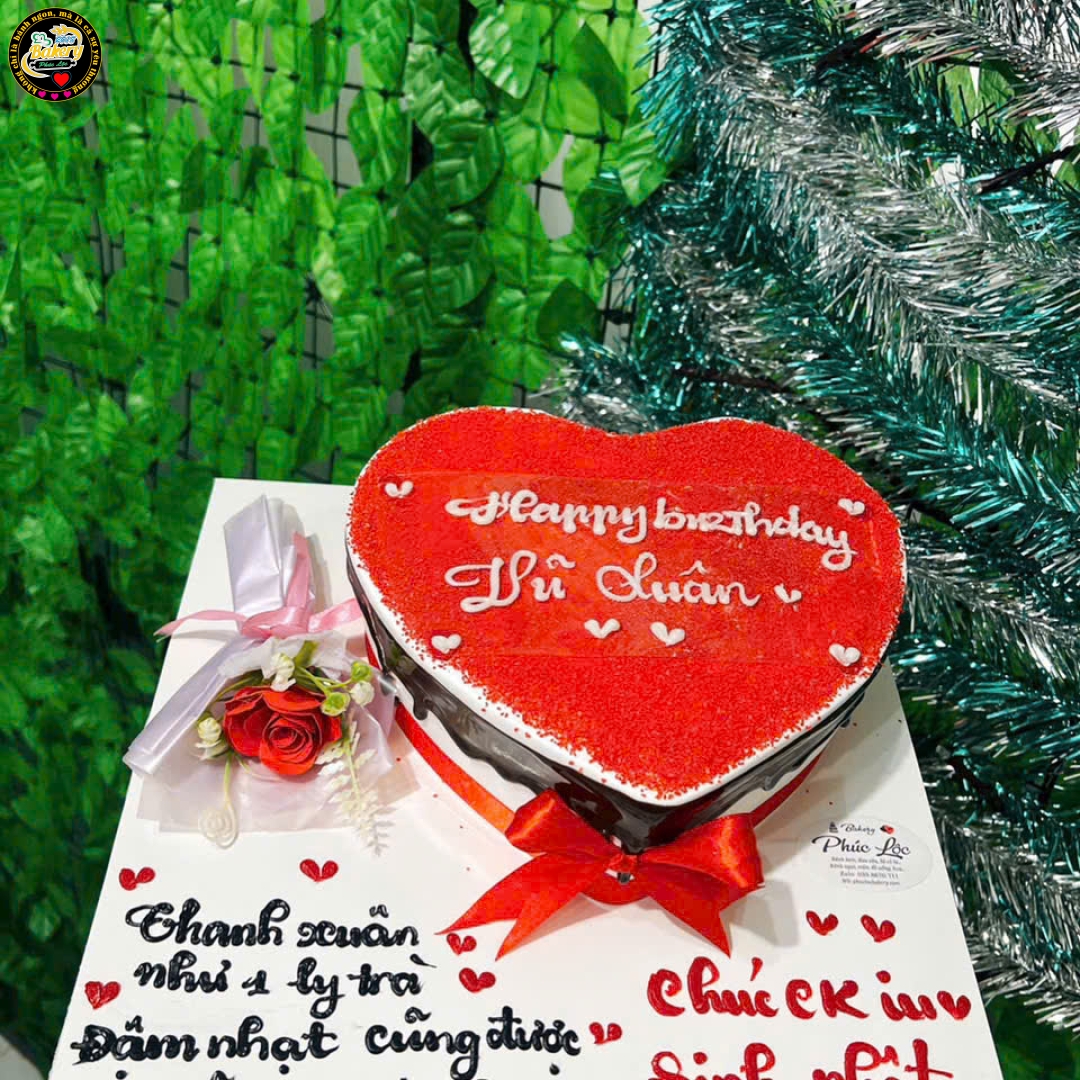 không chỉ là bánh ngon, mà là cả sự yêu thương
Bakery
Phúc Lộc
Happy birthday
Vũ Xuân
Bakery
Phúc Lộc
Thanh xuân
như 1 ly trà
Đậm nhạt cũng được
Chúc CK iu
Sinh nhật